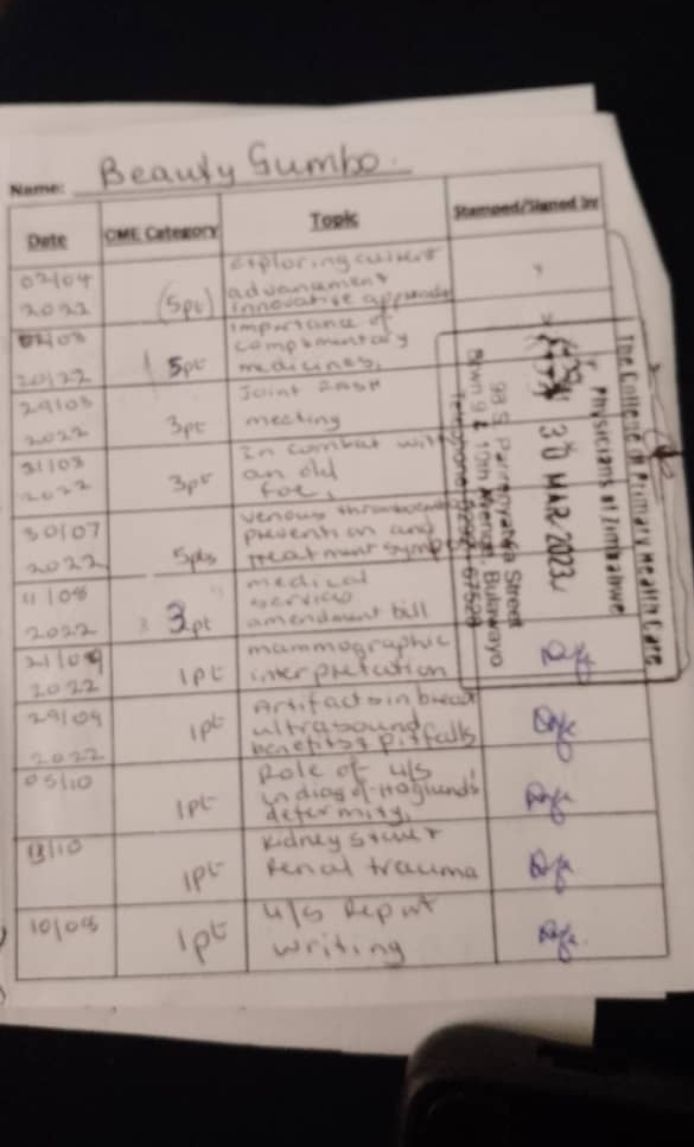 Name: Beauty Gumbo.
Date CME Category Topic Stamped/Signed by
02/04
2022
(5pt)
Exploring current
advancement
innovative
/03
5pt
Importance of
complementary
medicines,
29/03
2022
3pt
Joint
meeting
31/03
2022
3pt
In combat with
an old
foe,
30/07
2022
5pts
Venous
prevention and
treatment symp
11/08
2022
3pt
medical
services
amendment bill
21/09
2022
1pt
mammographic
interpretation
29/09
2022
1pt
Artifacts in breast
ultrasound
benefits & pitfalls
05/10
1pt
Role of U/S
in diag of Hoglund's
determity,
/10
1pt
Kidney
Renal trauma
10/08
1pt
U/S Report
writing
The College of Primary Health Care
Physicians of Zimbabwe
30 MAR 2023
98 S. Parirenyatwa Street
Btwn 9 & 10th Avenue, Bulawayo
Telephone 67528